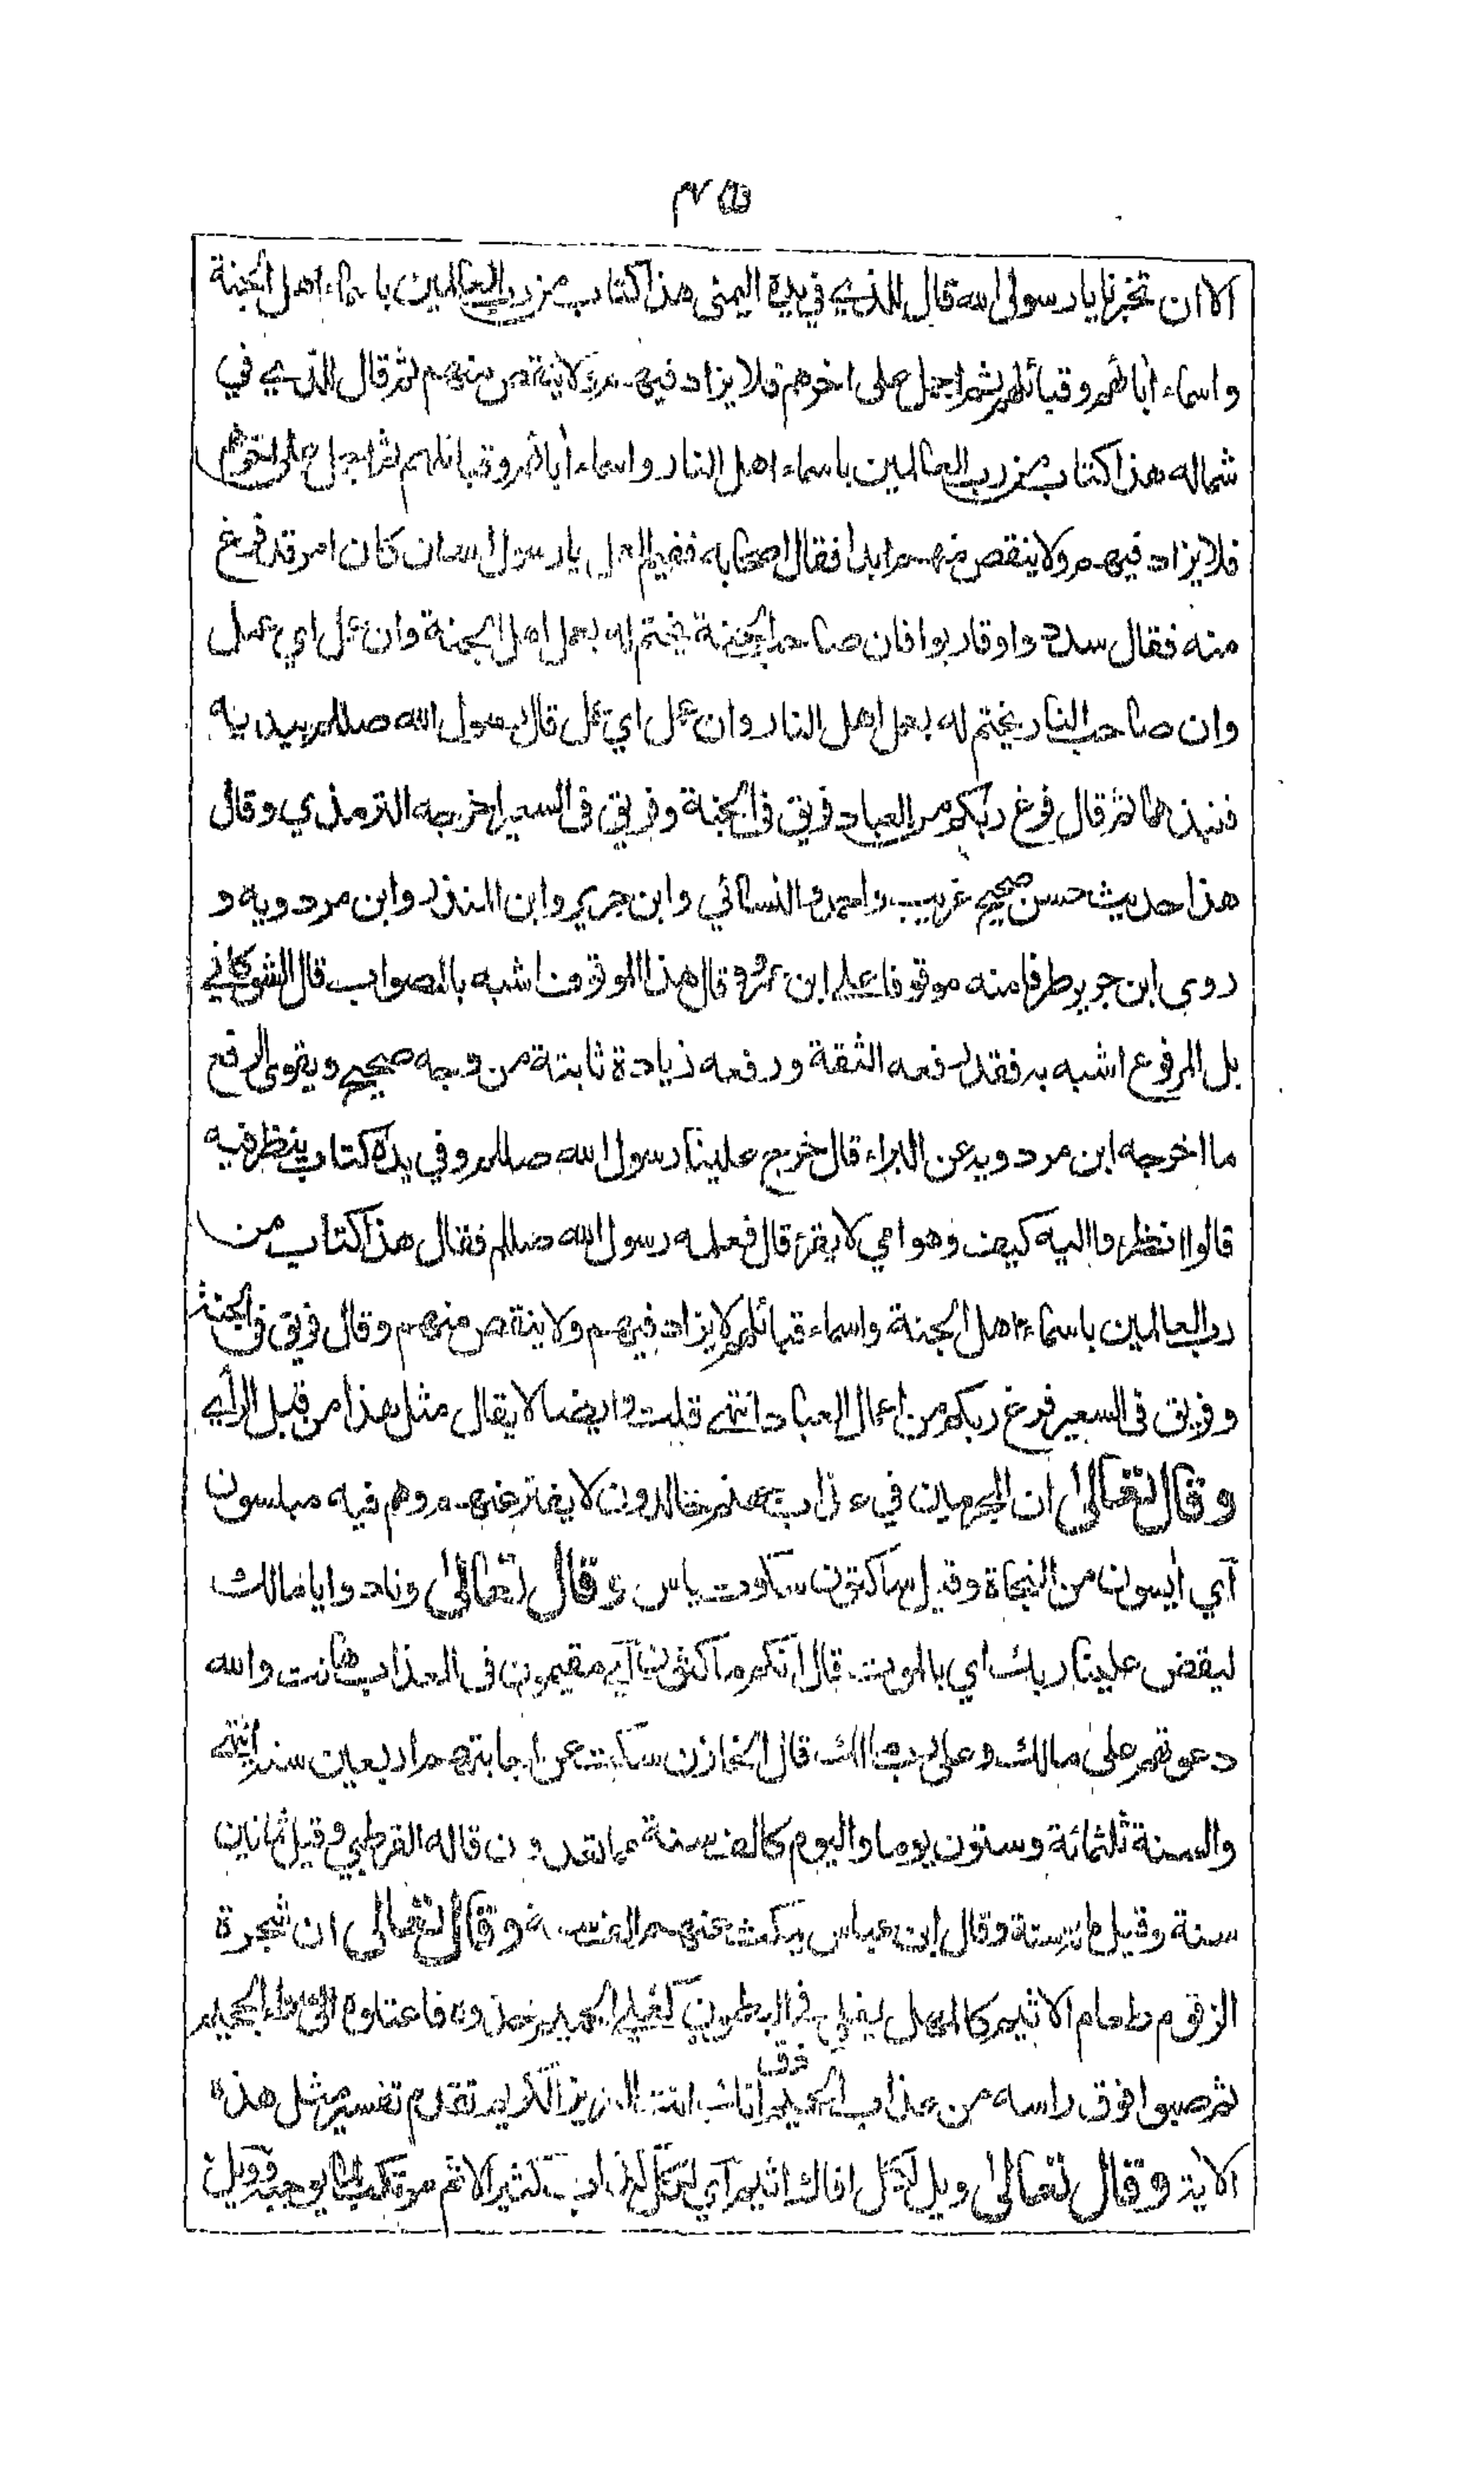 الا ان تخبرنا يا رسول الله قال للذي في يده اليمنى هذا كتاب من رب العالمين باسماء اهل الجنة
واسماء أبائهم وقبائلهم ثم اجمل على اخرهم فلا يزاد فيهم ولا ينقص منهم ثم قال للذي في
شماله هذا كتاب من رب العالمين باسماء اهل النار واسماء أبائهم وقبائلهم ثم اجمل على اخرهم
فلا يزاد فيهم ولا ينقص منهم ابدا فقال اصحابه ففيم العمل يا رسول الله ان كان امر قد فرغ
منه فقال سددوا وقاربوا فان صاحب الجنة يختم له بعمل اهل الجنة وان عمل اي عمل
وان صاحب النار يختم له بعمل اهل النار وان عمل اي عمل قال رسول الله صللم بيديه
فنبذهما ثم قال فرغ ربكم من العباد فريق في الجنة وفريق في السعير اخرجه الترمذي وقال
هذا حديث حسن صحيح غريب واحمد والنسائي وابن جرير وابن المنذر وابن مردويه و
روى ابن جرير طرفا منه موقوفا على ابن عمرو وقال هذا الموقوف اشبه بالصواب قال الشوكاني
بل المرفوع اشبه به فقد رفعه الثقة ورفعه زيادة ثابتة من وجه صحيح ويقوى الرفع
ما اخرجه ابن مردويه عن البراء قال خرج علينا رسول الله صللم وفي يده كتاب ينظر فيه
قالوا انظروا اليه كيف وهو امي لا يقرء قال فعلمه رسول الله صللم فقال هذا كتاب من
رب العالمين باسماء اهل الجنة واسماء قبائلهم لا يزاد فيهم ولا ينقص منهم وقال فريق في الجنة
وفريق في السعير فرغ ربكم من اعمال العباد انتهى قلت وايضا لا يقال مثل هذا من قبل الرأي
وقال تعالى ان المجرمين في عذاب جهنم خالدون لا يفتر عنهم وهم فيه مبلسون
أي أيسون من النجاة وقيل ساكتون سكوت ياس وقال تعالى ونادوا يا مالك
ليقض علينا ربك اي بالموت قال انكم ماكثون أي مقيمون في العذاب هانت والله
دعوتهم على مالك وعلى رب مالك قال الخازن سكت عن اجابتهم اربعين سنة انتهى
والسنة ثلثمائة وستون يوما واليوم كالف سنة مما تعدون قاله القرطبي وقيل ثمانين
سنة وقيل مائة سنة وقال ابن عباس يمكث عنهم الف سنة وقال تعالى ان شجرة
الزقوم طعام الاثيم كالمهل يغلي في البطون كغلي الحميم خذوه فاعتلوه الى سواء الجحيم
ثم صبوا فوق راسه من عذاب الحميم ذق انك انت العزيز الكريم تقدم تفسير مثل هذه
الأية وقال تعالى ويل لكل افاك اثيم أي لكل كذاب كثير الاثم مرتكب لما يوجبه فويل